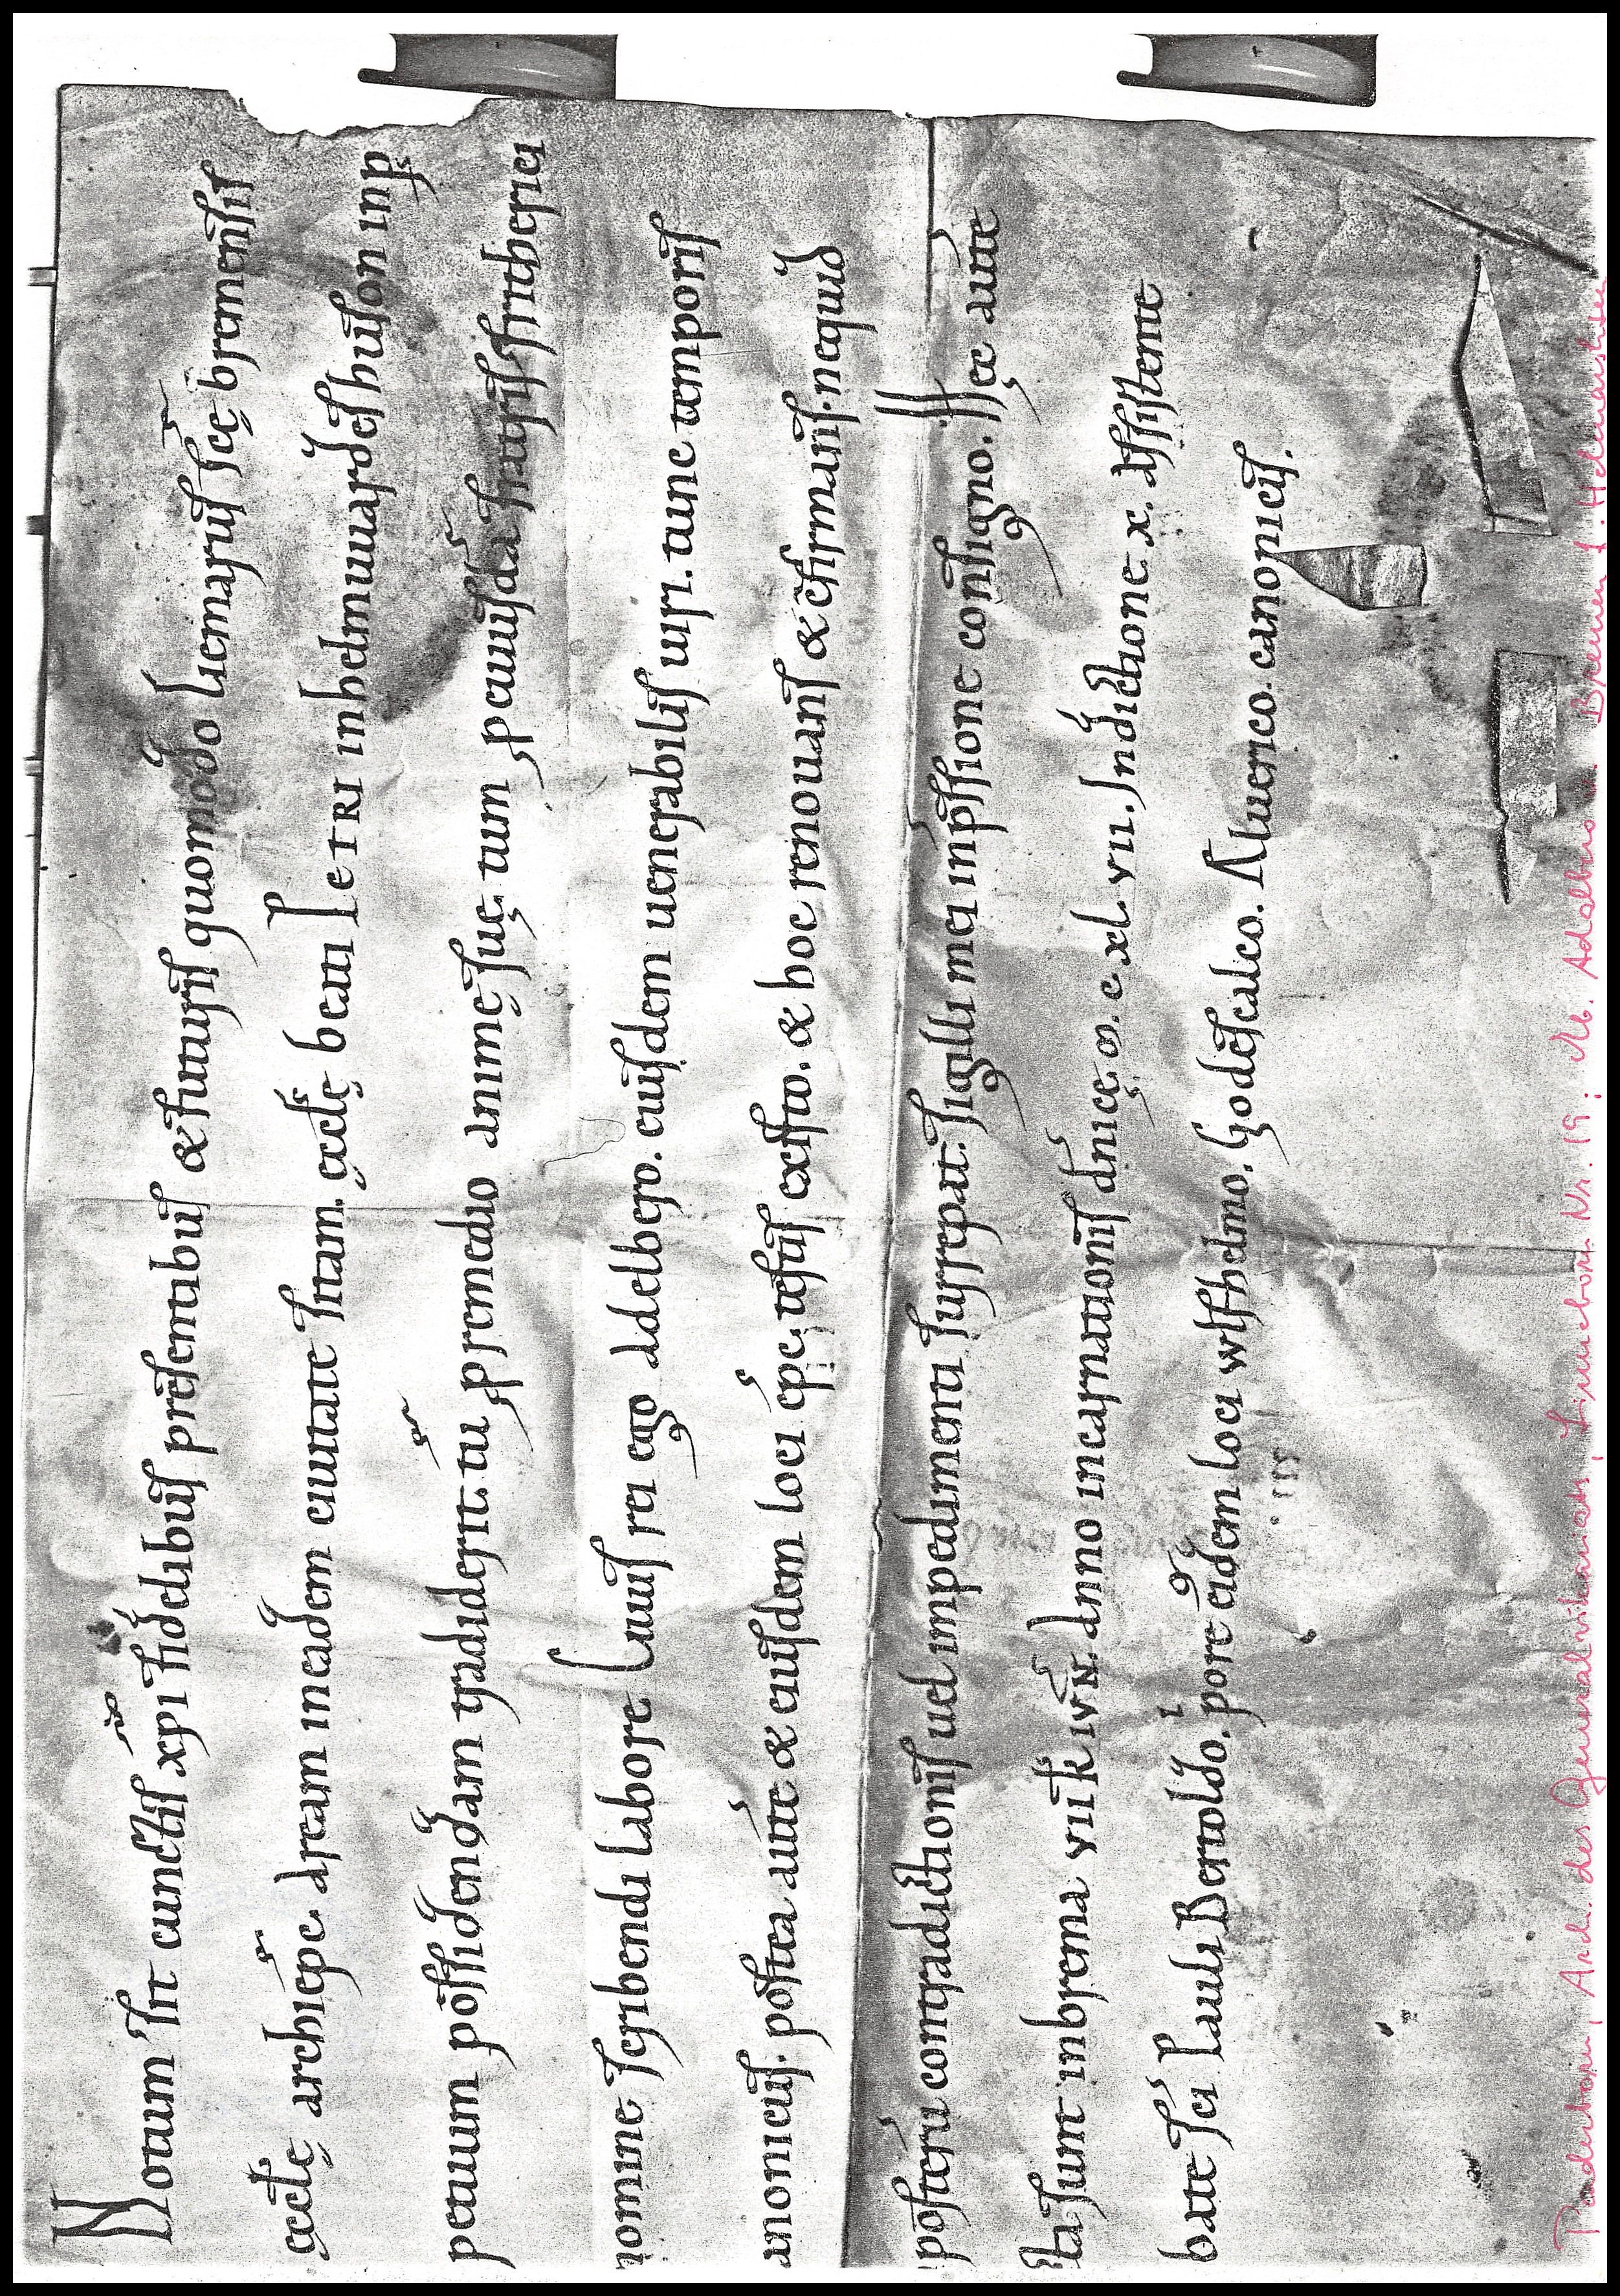 Notum sit cunctis xp̄i fidelibus presentibus & futuris quomodo Liemarus scę bremensis
ęcclę archiepc. aream in eadem ciuitate sitam. ęcclę beati PETRI in helmwardeshuson inp
petuum possidendam tradiderit. tū p remedio animę suę. tum p cuiusdā fratris fritherici
nomine scribendi labore. Cuius rei ego adelbero. eiusdem uenerabilis uiri. tunc temporis
anonicus. postea aute & eiusdem loci epc. testis existo. & hoc renouans & c̄firmans. nequid
posterū contradictionis uel impedimenti surrepat. sigilli mei inpssione consigno. Hęc aute
ta sunt in brema. VIII. K. IVN. Anno incarnationis dnicę. ꝏ. c. xl. vii. Indictione. x. assistente
bate sci Pauli Bertoldo. pore eiusdem loci wlfhelmo. Godescalco. Aluerico. canonicis.
Paderborn, Arch. des Generalvikariats, Lippspringe Nr. 19: Eb. Adalbero v. Bremen f. Helmarshsn